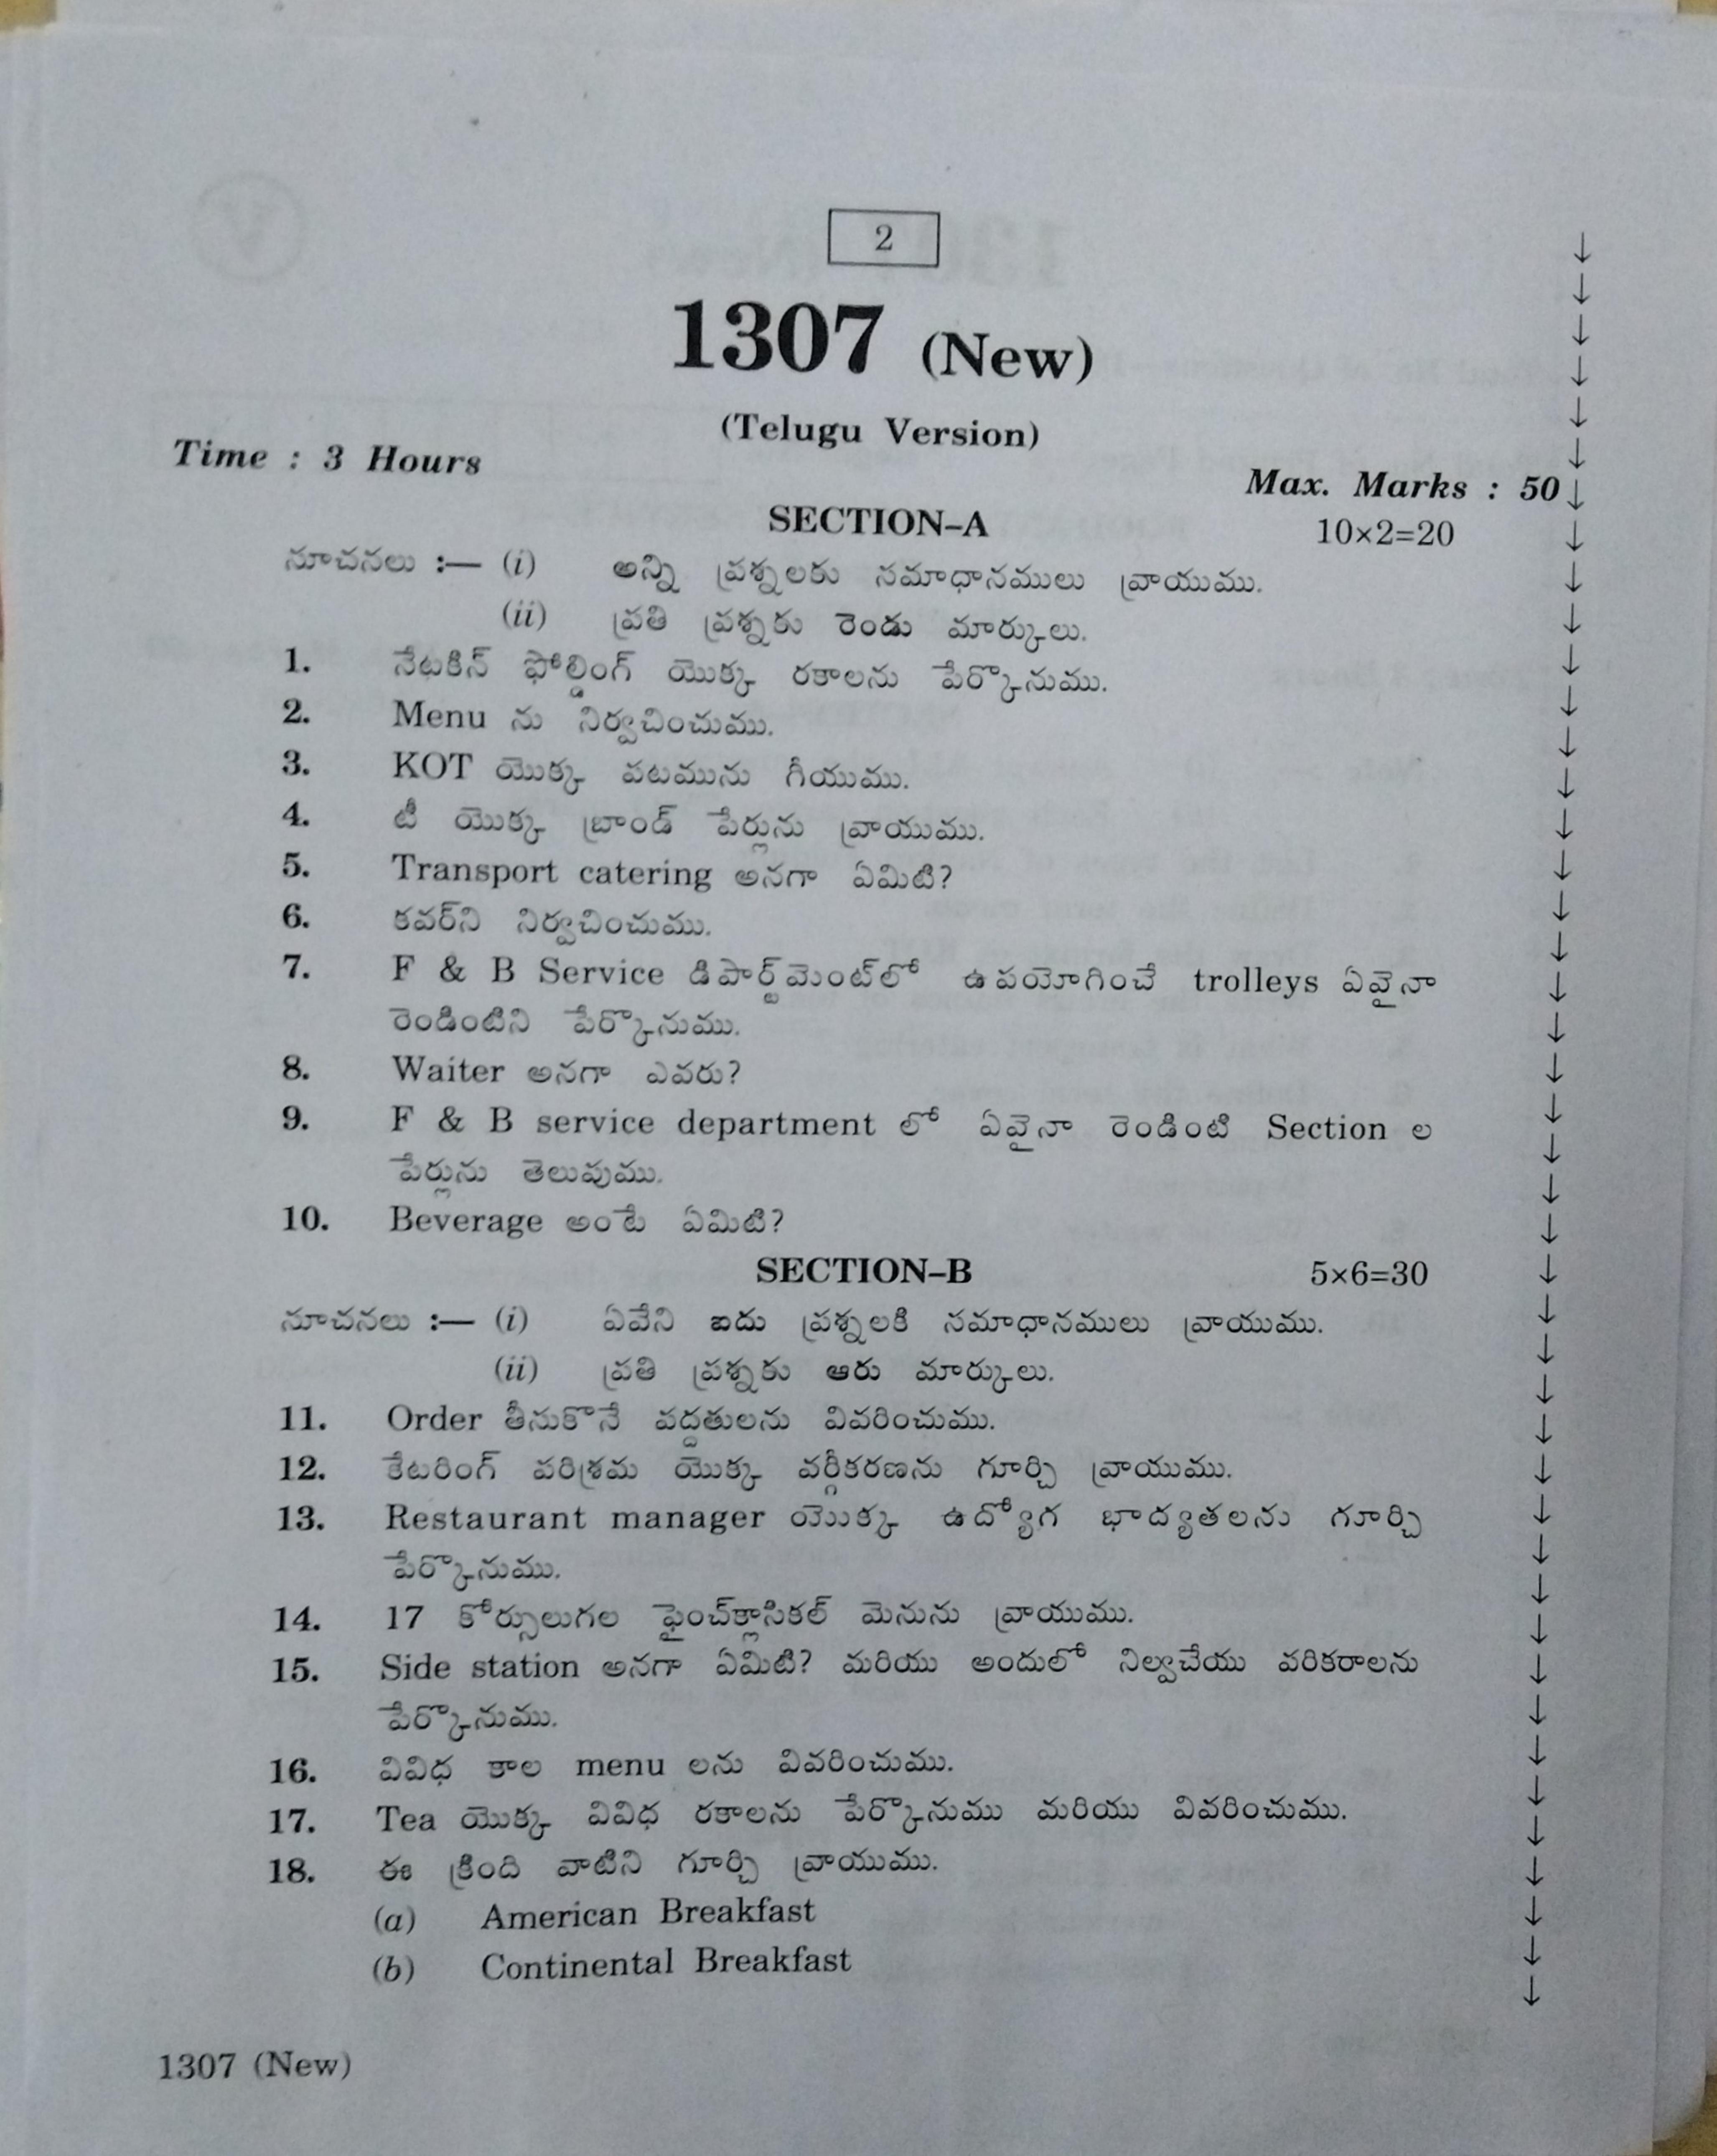 2
1307 (New)
(Telugu Version)
Time : 3 Hours
Max. Marks : 50
SECTION–A 10×2=20
సూచనలు :— (i) అన్ని ప్రశ్నలకు సమాధానములు వ్రాయుము.
(ii) ప్రతి ప్రశ్నకు రెండు మార్కులు.
1. నేటకిన్ ఫోల్డింగ్ యొక్క రకాలను పేర్కొనుము.
2. Menu ను నిర్వచించుము.
3. KOT యొక్క పటమును గీయుము.
4. టీ యొక్క బ్రాండ్ పేర్లును వ్రాయుము.
5. Transport catering అనగా ఏమిటి?
6. కవర్‌ని నిర్వచించుము.
7. F & B Service డిపార్ట్‌మెంట్‌లో ఉపయోగించే trolleys ఏవైనా
రెండింటిని పేర్కొనుము.
8. Waiter అనగా ఎవరు?
9. F & B service department లో ఏవైనా రెండింటి Section ల
పేర్లును తెలుపుము.
10. Beverage అంటే ఏమిటి?
SECTION–B 5×6=30
సూచనలు :— (i) ఏవేని ఐదు ప్రశ్నలకి సమాధానములు వ్రాయుము.
(ii) ప్రతి ప్రశ్నకు ఆరు మార్కులు.
11. Order తీసుకొనే పద్దతులను వివరించుము.
12. కేటరింగ్ పరిశ్రమ యొక్క వర్గీకరణను గూర్చి వ్రాయుము.
13. Restaurant manager యొక్క ఉద్యోగ భాద్యతలను గూర్చి
పేర్కొనుము.
14. 17 కోర్సులుగల ఫైంచ్‌క్లాసికల్ మెనును వ్రాయుము.
15. Side station అనగా ఏమిటి? మరియు అందులో నిల్వచేయు పరికరాలను
పేర్కొనుము.
16. వివిధ కాల menu లను వివరించుము.
17. Tea యొక్క వివిధ రకాలను పేర్కొనుము మరియు వివరించుము.
18. ఈ క్రింది వాటిని గూర్చి వ్రాయుము.
(a) American Breakfast
(b) Continental Breakfast
1307 (New)